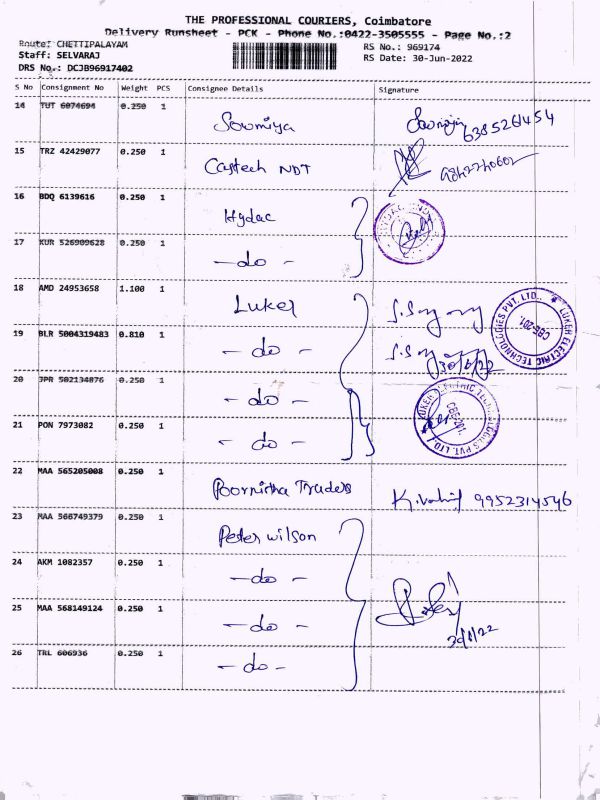 THE PROFESSIONAL COURIERS, Coimbatore
Delivery Runsheet - PCK - Phone No.:0422-3505555 - Page No.:2
Route: CHETTIPALAYAM
Staff: SELVARAJ
DRS No.: DCJB96917402
RS No.: 969174
RS Date: 30-Jun-2022
S No Consignment No Weight PCS Consignee Details Signature
14 TUT 6074694 0.250 1 Sowmiya 6385261454
15 TRZ 42429077 0.250 1 Castech NDT
16 BDQ 6139616 0.250 1 Hydac
17 KUR 526909628 0.250 1 -do-
18 AMD 24953658 1.100 1 Luker
19 BLR 5004319483 0.810 1 -do- 30/6/22
20 JPR 502134876 0.250 1 -do-
21 PON 7973082 0.250 1 -do-
LUKER ELECTRIC TECHNOLOGIES PVT. LTD.
CBE-201.
LUKER ELECTRIC TECHNOLOGIES PVT. LTD.
CBE-201.
22 MAA 565205008 0.250 1 Poornitha Traders 9952314546
23 MAA 566749379 0.250 1 Peter wilson
24 AKM 1082357 0.250 1 -do-
25 MAA 568149124 0.250 1 -do-
26 TRL 606936 0.250 1 -do-